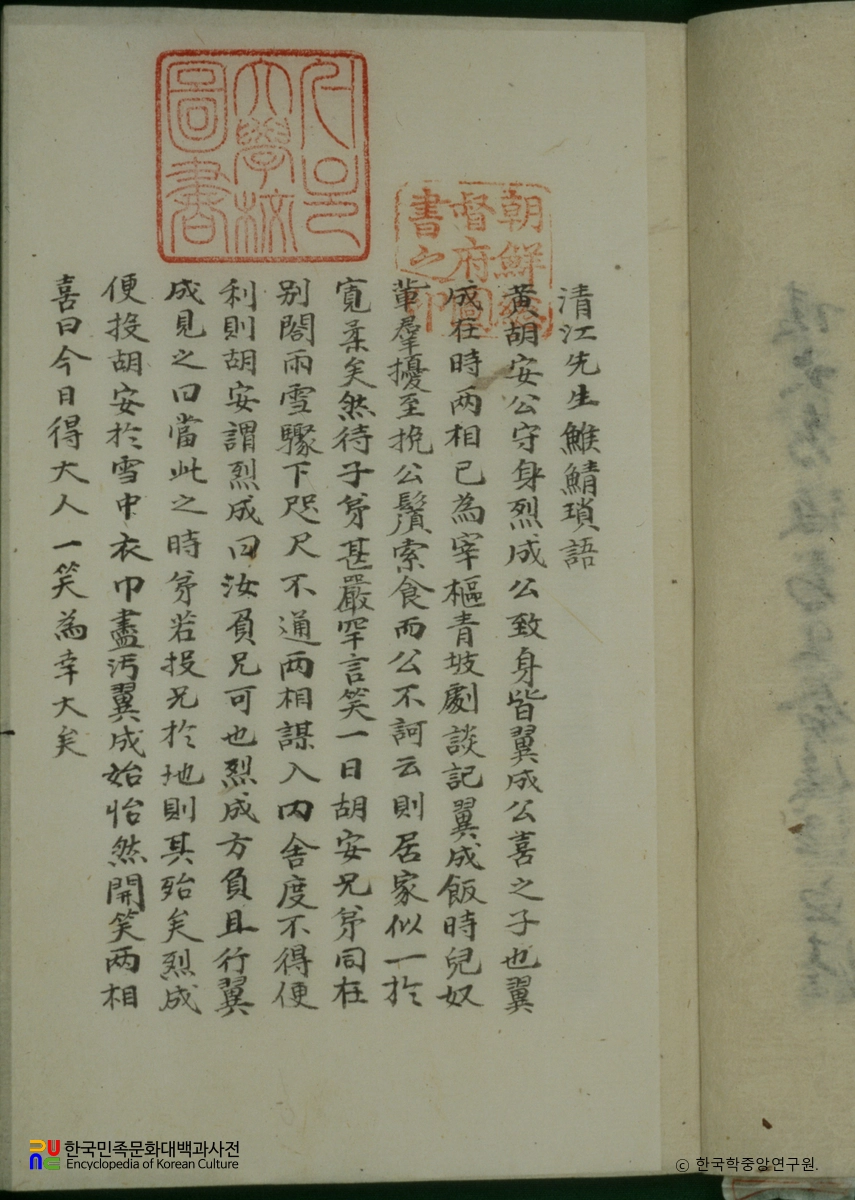 清江先生鯸鯖瑣語
黃胡安公守身烈成公致身皆翼成公喜之子也翼
成在時兩相已為宰樞青坡劇談記翼成飯時兒奴
輩羣擾至挽公鬚索食而公不訶云則居家似一於
寬柔矣然待子弟甚嚴罕言笑一日胡安兄弟同在
別閤雨雪驟下咫尺不通兩相謀入內舍度不得便
利則胡安謂烈成曰汝負兄可也烈成方負且行翼
成見之曰當此之時弟若投兄於地則其殆矣烈成
便投胡安於雪中衣巾盡汚翼成始怡然開笑兩相
喜曰今日得大人一笑為幸大矣
朝鮮總
督府圖
書之印
서울
大學校
圖書
한국민족문화대백과사전
Encyclopedia of Korean Culture
ⓒ 한국학중앙연구원.